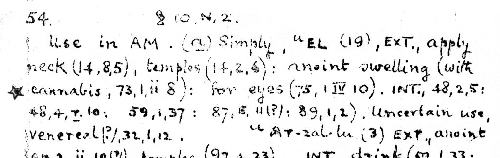 54. § 10, N, 2.
Use in AM. (a) Simply, ᵘEL (19), EXT., apply
neck (14,8,5), temples (14,2,6): anoint swelling (with
cannabis, 73,1,ii 8): for eyes (75,1 IV 10). INT., 48,2,5:
48,4,r. 10: 59,1,37: 87,5,ii(?): 89,1,2). Uncertain use,
venereal(?), 32,1,12. ᵘAr-zal-lu (3) EXT., anoint
temples (97, 4, 23). INT., drink (59,1,33: